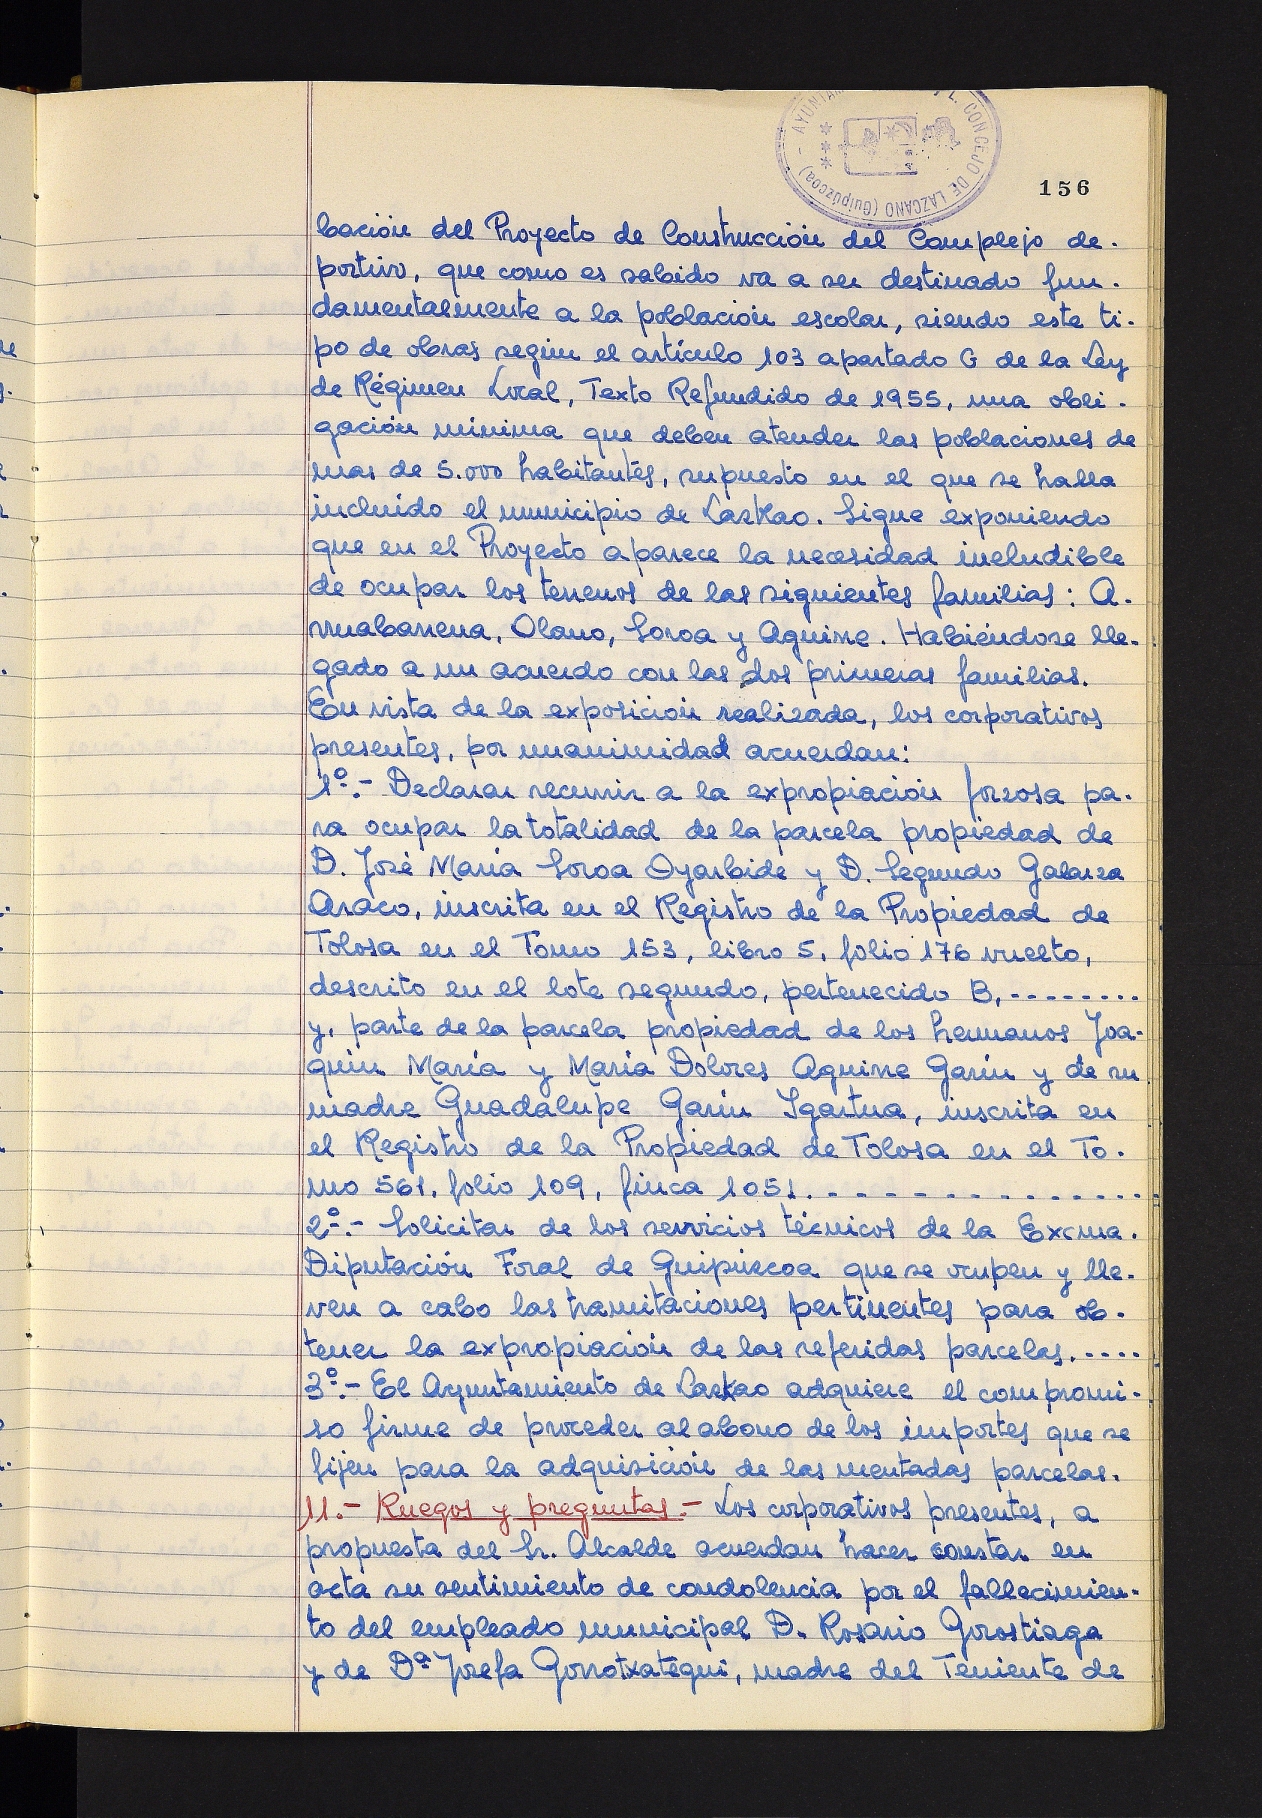 156
AYUNTAM
L. CONCEJO DE LAZCANO (Guipúzcoa)
bación del Proyecto de Construcción del Complejo de-
portivo, que como es sabido va a ser destinado fun-
damentalmente a la población escolar, siendo este ti-
po de obras según el artículo 103 apartado G de la Ley
de Régimen Local, Texto Refundido de 1955, una obli-
gación mínima que deben atender las poblaciones de
mas de 5.000 habitantes, supuesto en el que se halla
incluído el municipio de Lazkao. Sigue exponiendo
que en el Proyecto aparece la necesidad ineludible
de ocupar los terrenos de las siguientes familias: A-
rruabarrena, Olano, Soroa y Aguirre. Habiéndose lle-
gado a un acuerdo con las dos primeras familias.
En vista de la exposición realizada, los corporativos
presentes, por unanimidad acuerdan:
1º.- Declarar recurrir a la expropiación forzosa pa-
ra ocupar la totalidad de la parcela propiedad de
D. José María Soroa Oyarbide y D. Segundo Galarza
Araco, inscrita en el Registro de la Propiedad de
Tolosa en el Tomo 153, libro 5, folio 176 vuelto,
descrito en el lote segundo, pertenecido B,--------
y, parte de la parcela propiedad de los hermanos Joa-
quín María y María Dolores Aguirre Garín y de su
madre Guadalupe Garín Igartua, inscrita en
el Registro de la Propiedad de Tolosa en el To-
mo 561, folio 109, finca 1051.- - - - - - - - - - - - - -
2º.- Solicitar de los servicios técnicos de la Excma.
Diputación Foral de Guipúzcoa que se ocupen y lle-
ven a cabo las tramitaciones pertinentes para ob-
tener la expropiación de las referidas parcelas.----
3º.- El Ayuntamiento de Lazkao adquiere el compromi-
so firme de proceder al abono de los importes que se
fijen para la adquisición de las mentadas parcelas.
11.- Ruegos y preguntas.- Los corporativos presentes, a
propuesta del Sr. Alcalde acuerdan hacer constar en
acta su sentimiento de condolencia por el fallecimien-
to del empleado municipal D. Rosario Gorostiaga
y de Dª Josefa Gorrotxategui, madre del Teniente de